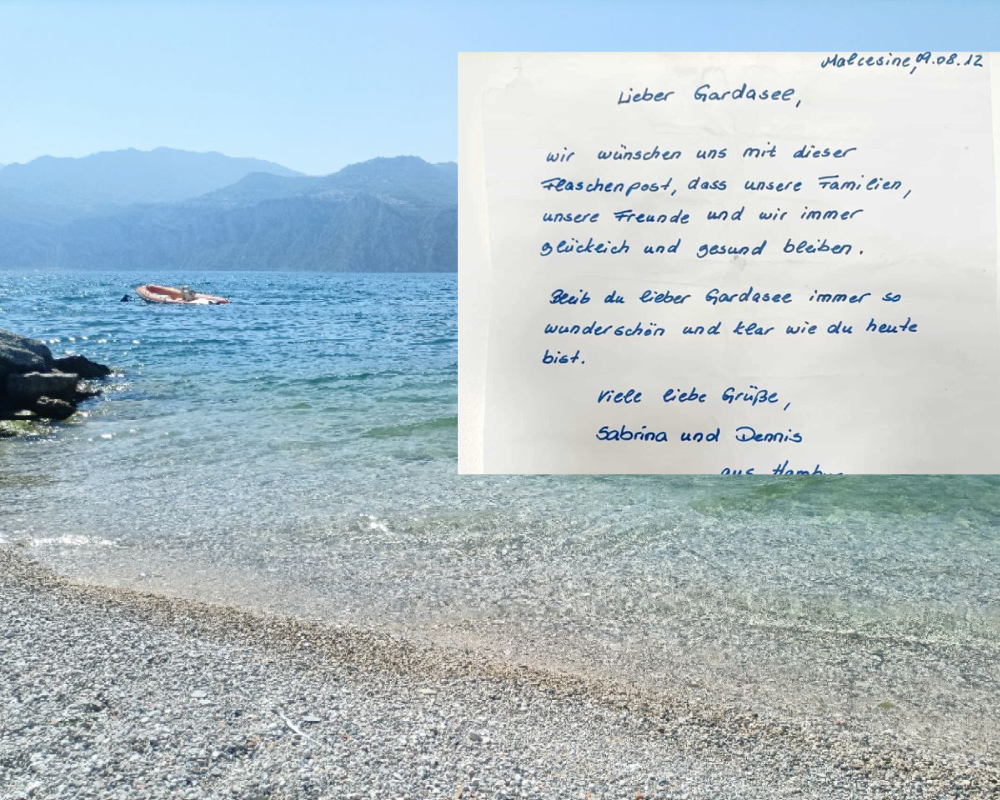 Malcesine, 09.08.12
Lieber Gardasee,
wir wünschen uns mit dieser
Flaschenpost, dass unsere Familien,
unsere Freunde und wir immer
glücklich und gesund bleiben.
Bleib du lieber Gardasee immer so
wunderschön und klar wie du heute
bist.
Viele liebe Grüße,
Sabrina und Dennis
aus